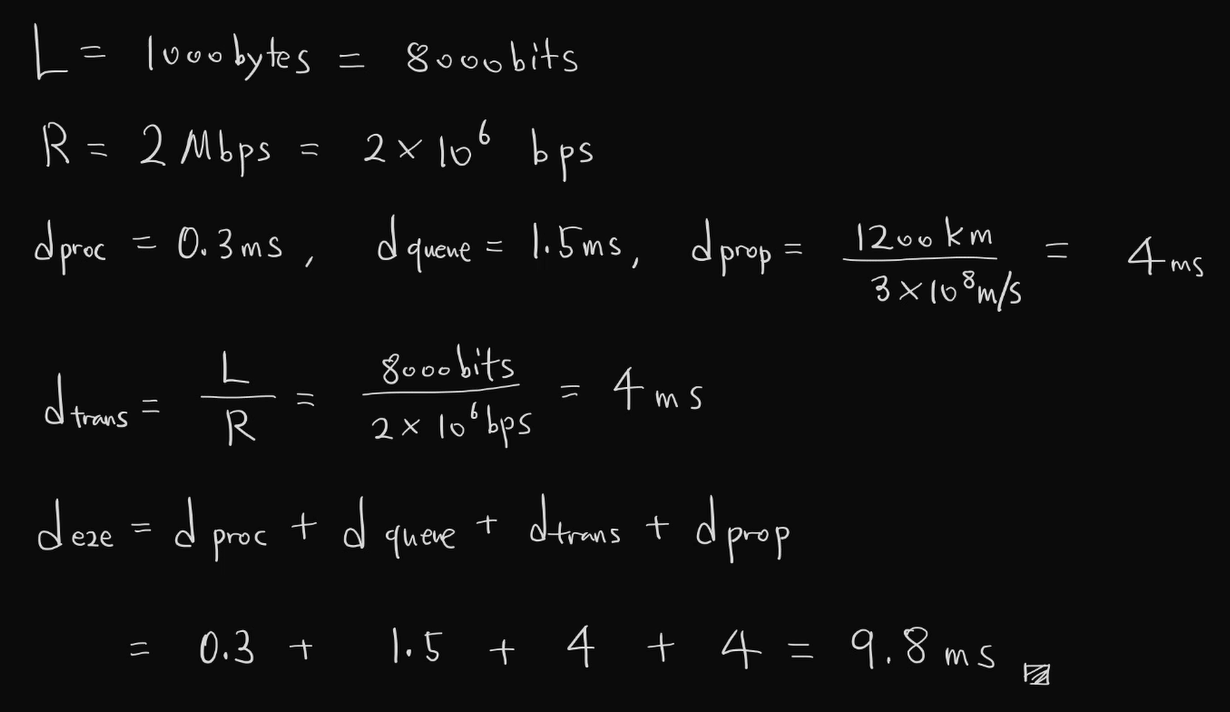 L = 1000bytes = 8000bits
R = 2 Mbps = 2 × 10⁶ bps
dproc = 0.3ms, dqueue = 1.5ms, dprop = 1200 km / 3 × 10⁸ m/s = 4 ms
dtrans = L / R = 8000bits / 2 × 10⁶ bps = 4 ms
de2e = dproc + dqueue + dtrans + dprop
= 0.3 + 1.5 + 4 + 4 = 9.8 ms